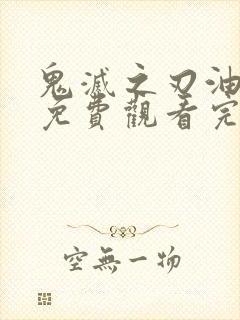 鬼滅之刃油
免費觀看完
空無一物